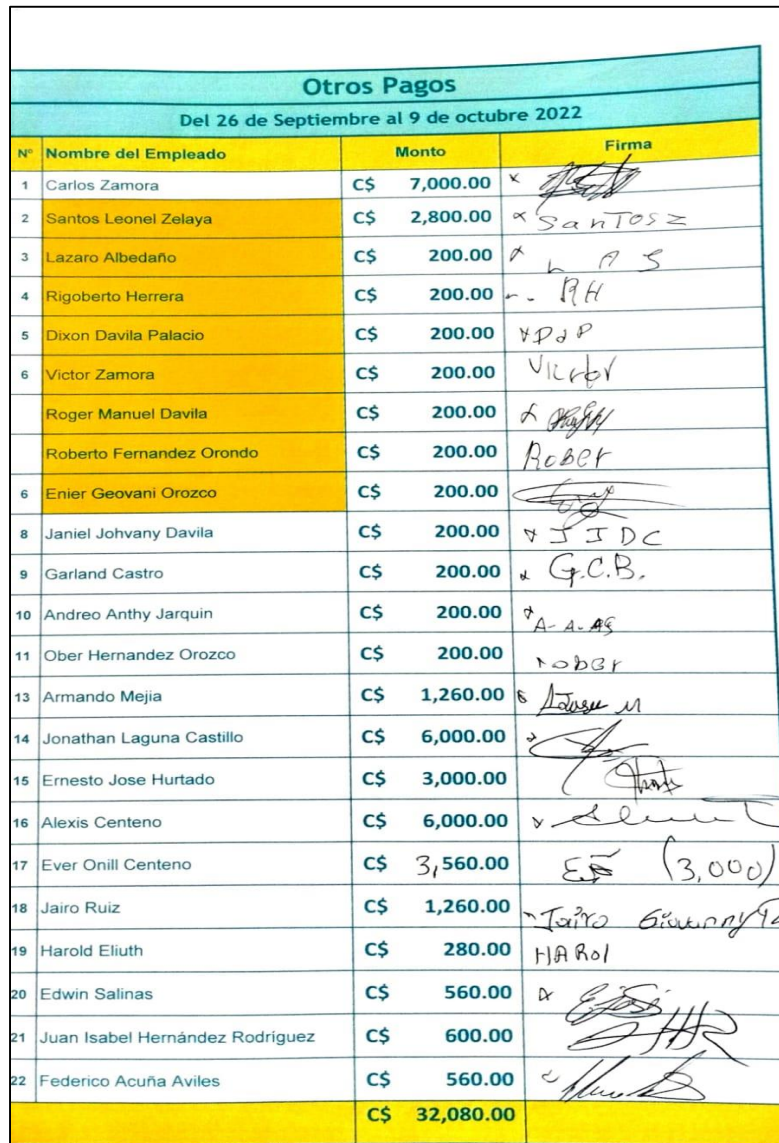 Otros Pagos
Del 26 de Septiembre al 9 de octubre 2022
Nº Nombre del Empleado Monto Firma
1 Carlos Zamora C$ 7,000.00
2 Santos Leonel Zelaya C$ 2,800.00 x SanTosz
3 Lazaro Albedaño C$ 200.00 L A S
4 Rigoberto Herrera C$ 200.00 RH
5 Dixon Davila Palacio C$ 200.00 x DdP
6 Victor Zamora C$ 200.00 Victor
Roger Manuel Davila C$ 200.00
Roberto Fernandez Orondo C$ 200.00 Rober
6 Enier Geovani Orozco C$ 200.00
8 Janiel Johvany Davila C$ 200.00 x J J D C
9 Garland Castro C$ 200.00 x G.C.B.
10 Andreo Anthy Jarquin C$ 200.00
11 Ober Hernandez Orozco C$ 200.00 ober
13 Armando Mejia C$ 1,260.00
14 Jonathan Laguna Castillo C$ 6,000.00
15 Ernesto Jose Hurtado C$ 3,000.00
16 Alexis Centeno C$ 6,000.00
17 Ever Onill Centeno C$ 3,560.00 (3,000)
18 Jairo Ruiz C$ 1,260.00 Jairo Giovanny
19 Harold Eliuth C$ 280.00 HARol
20 Edwin Salinas C$ 560.00
21 Juan Isabel Hernández Rodríguez C$ 600.00
22 Federico Acuña Aviles C$ 560.00
C$ 32,080.00